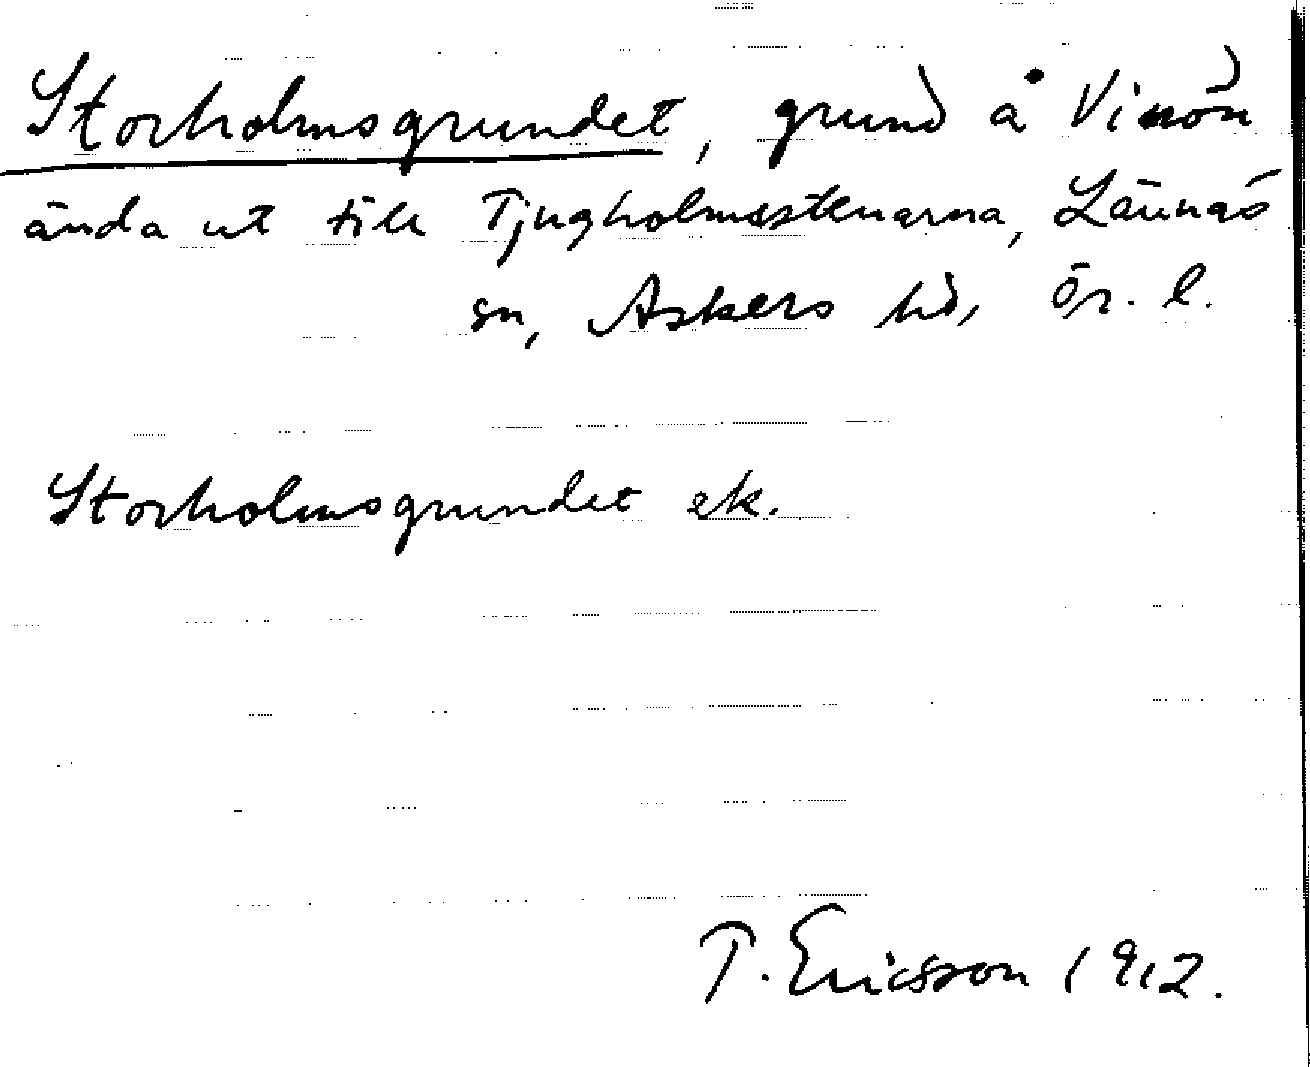 Storholmsgrundet, grund å Vinön
ända ut till Tjugholmsstenarna, Lännäs
sn, Askers hd, Ör. l.
Storholmsgrundet ek.
T. Ericsson 1912.